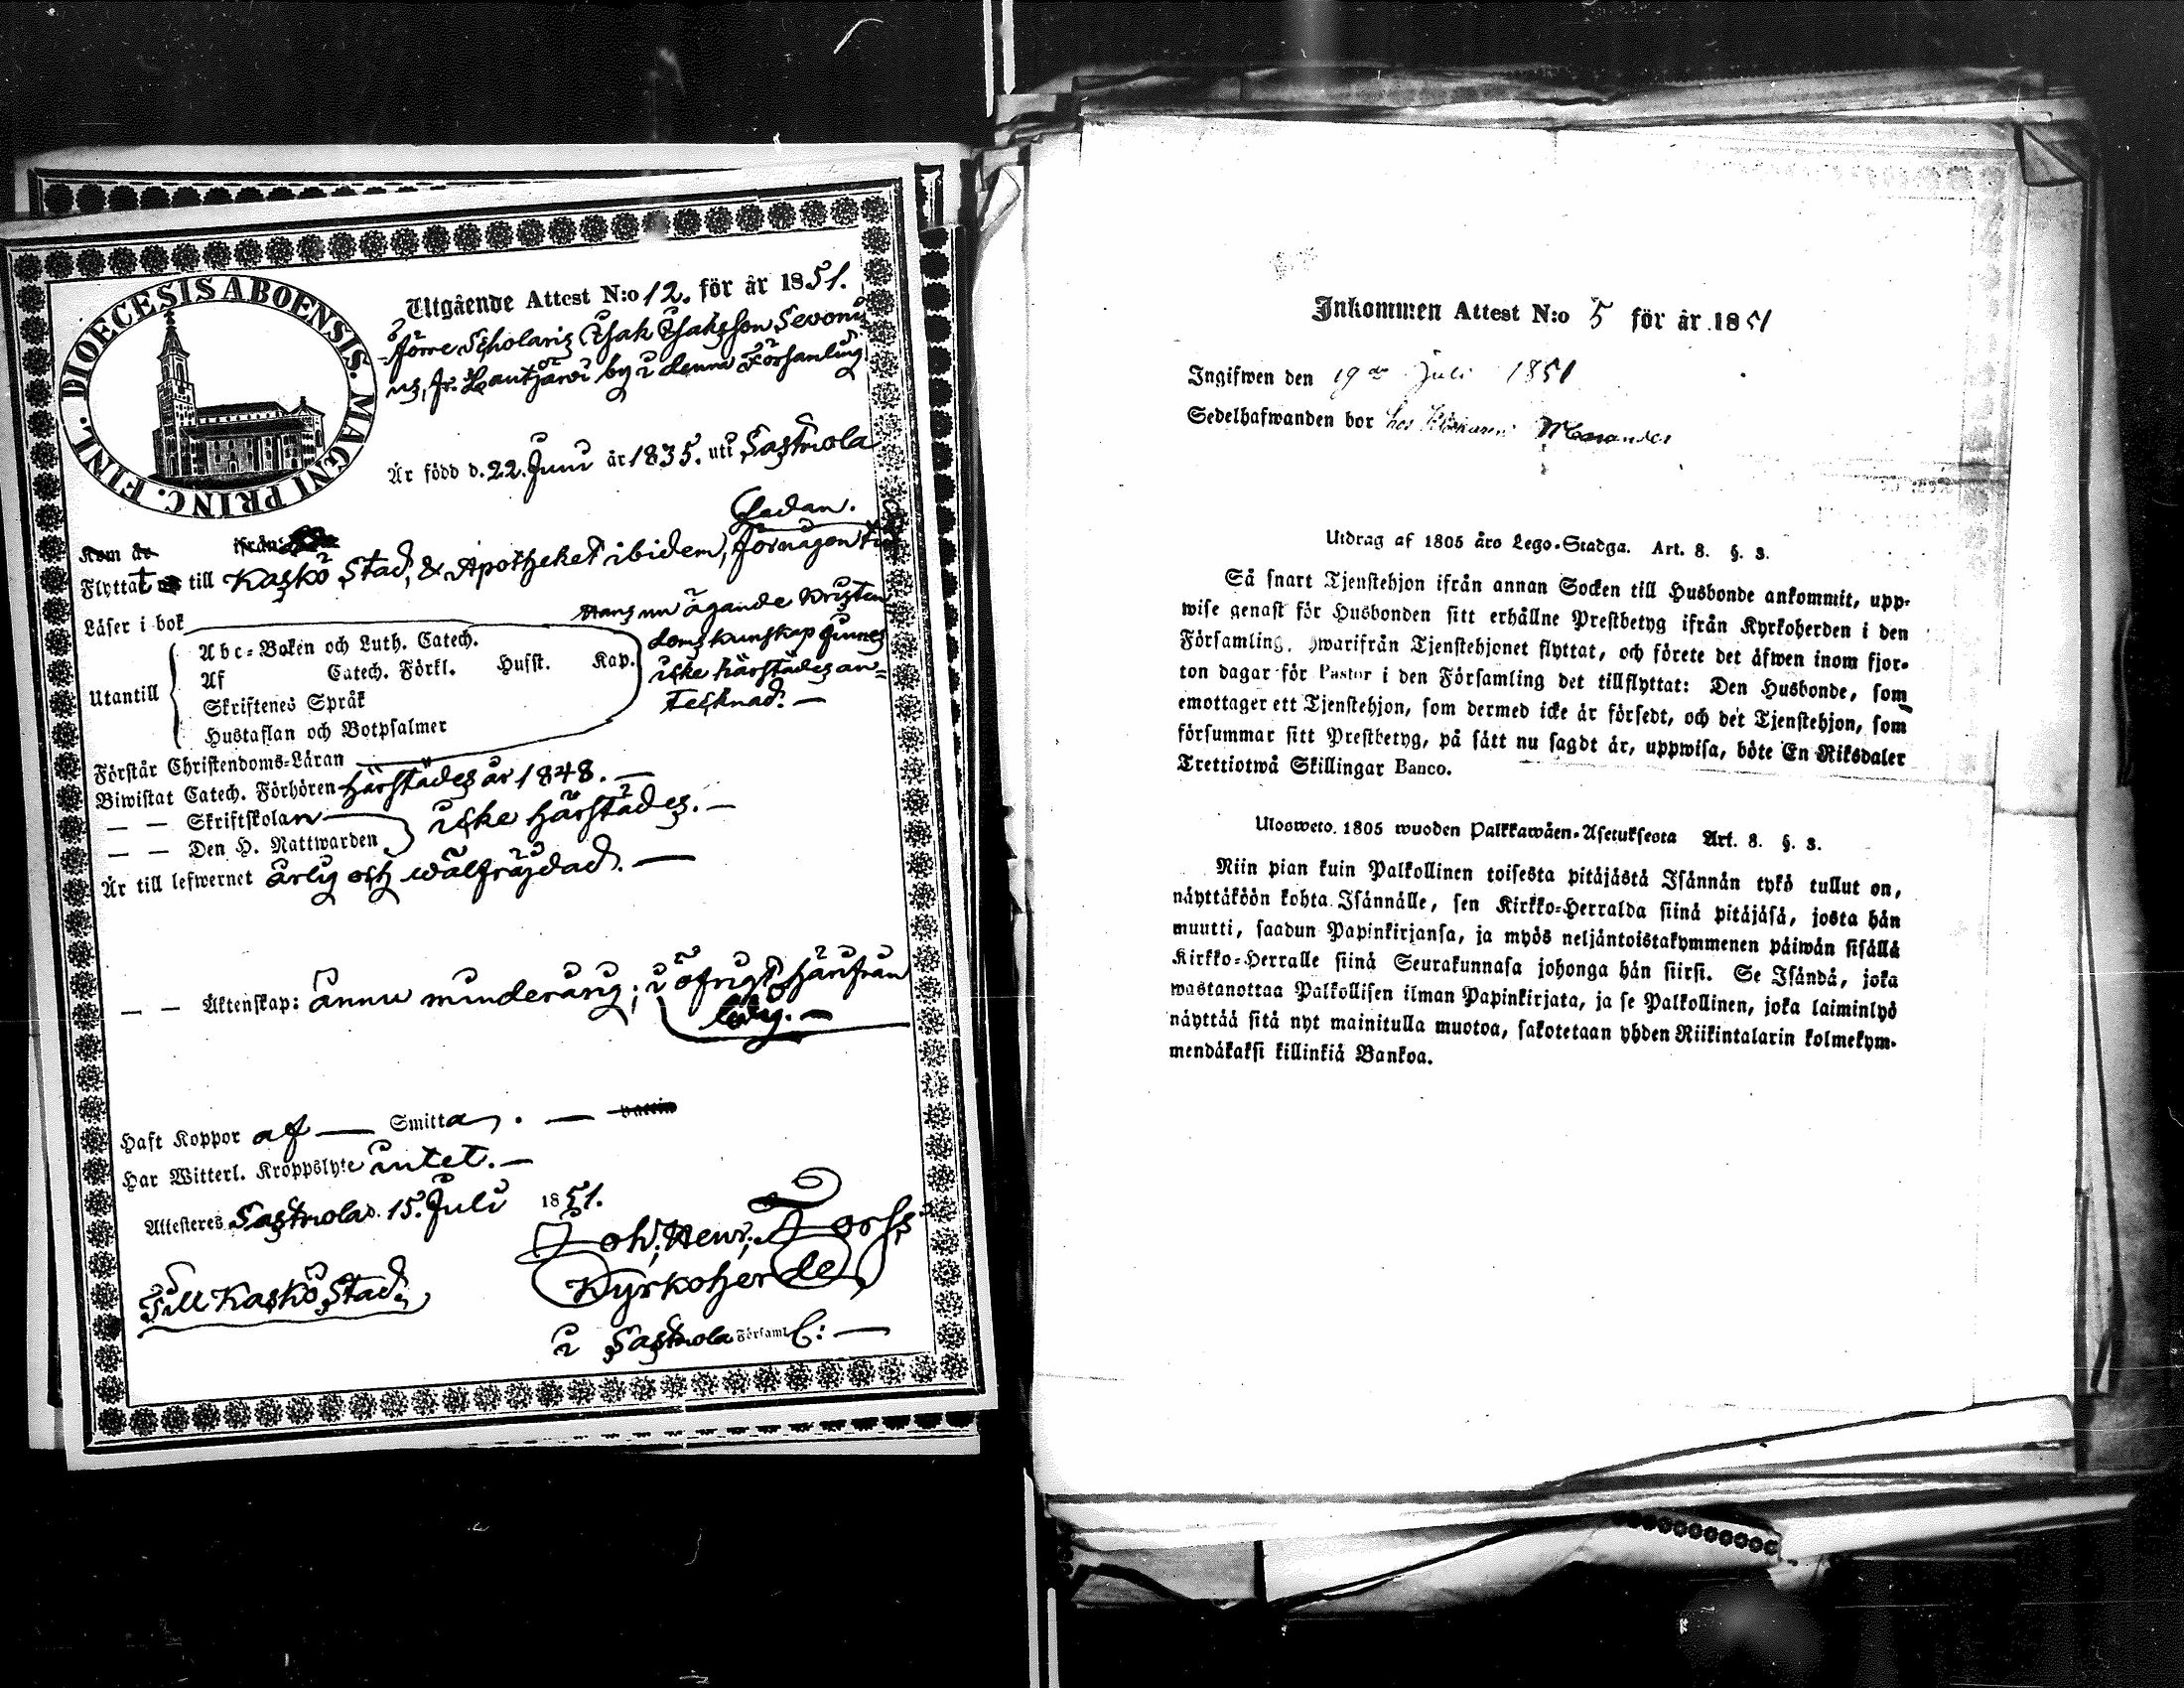 DIOECESIS ABOENSIS. MAGNI PRINC. FINL.
Utgående Attest N:o 12. för år 1851.
Förre Scholaris Isak Isaksson Sevoni
us, fr. Lautjärvi by i denna Församling
Är född d. 22. Juni år 1835. uti Sastmola
sedan.
Kom år ifrån
Flyttat till Kaskö Stad, & Apotheket ibidem, för någon tid
Läser i bok
Hans nu ägande Kristen-
doms kunskap finnes
icke härstädes an-
tecknad. —
Utantill
Abc-Boken och Luth. Catech.
Af Catech. Förkl. Husst. Kap.
Skriftenes Språk
Hustaflan och Botpsalmer
Förstår Christendoms-Läran
Biwistat Catech. Förhören härstädes år 1848. —
— — Skriftskolan
— — Den H. Nattwarden icke härstädes. —
Är till lefwernet ärlig och wälfräjdad. —
— — Äktenskap: ännu minderårig; i öfrigt härifrån
ledig. —
Haft Koppor af — Smitta, . —
Har Witterl. Kroppslyte intet. —
Attesteres Sastmola d. 15. Juli 1851.
Joh. Henr. Forss
Kyrkoherde
Till Kaskö Stad.
i Sastmola Församl:
Inkommen Attest N:o 5 för år 1851
Ingifwen den 19de Juli 1851
Sedelhafwanden bor hos
Utdrag af 1805 års Lego-Stadga. Art. 8. §. 3.
Så snart Tjenstehjon ifrån annan Socken till Husbonde ankommit, upp-
wise genast för Husbonden sitt erhållne Prestbetyg ifrån Kyrkoherden i den
Församling, hwarifrån Tjenstehjonet flyttat, och förete det äfwen inom fjor-
ton dagar för Pastor i den Församling det tillflyttat: Den Husbonde, som
emottager ett Tjenstehjon, som dermed icke är försedt, och det Tjenstehjon, som
försummar sitt Prestbetyg, på sätt nu sagdt är, uppwisa, böte En Riksdaler
Trettiotwå Skillingar Banco.
Ulosweto. 1805 wuoden Palkkawäen-Asetuksesta Art. 8. §. 3.
Niin pian kuin Palkollinen toisesta pitäjästä Isännän tykö tullut on,
näyttäköön kohta Isännälle, sen Kirkko-Herralda siinä pitäjäsä, josta hän
muutti, saadun Papinkirjansa, ja myös neljäntoistakymmenen päiwän sisällä
Kirkko-Herralle siinä Seurakunnasa johonga hän siirsi. Se Isändä, joka
wastanottaa Palkollisen ilman Papinkirjata, ja se Palkollinen, joka laiminlyö
näyttää sitä nyt mainitulla muotoa, sakotetaan yhden Riikintalarin kolmekym-
mendäkaksi killinkiä Bankoa.